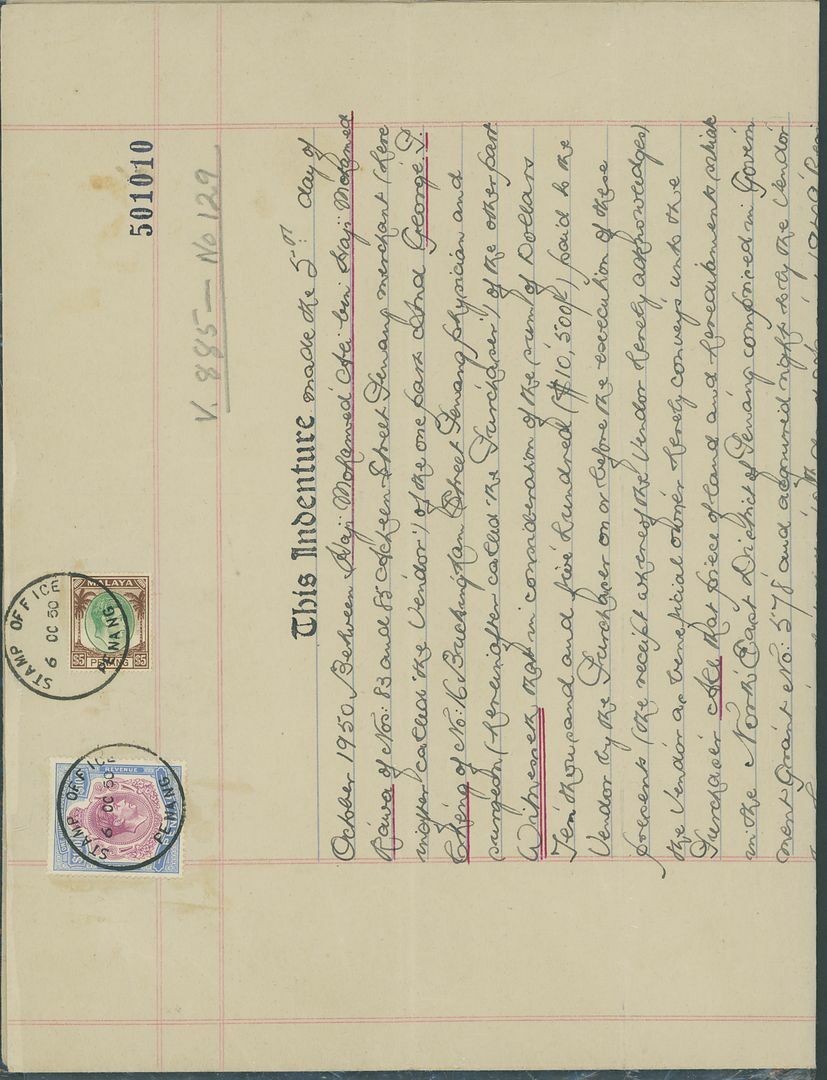 501010
V. 885 — No 129
STAMP OFFICE
6 OC 50
PENANG
REVENUE
STAMP OFFICE
6 OC 50
PENANG
MALAYA
$5 PENANG $5
This Indenture made the 5th day of
October 1950 Between Haji Mohamed Ali bin Haji Mohamed
Rawa of Nos: 83 and 85 Acheen Street Penang merchant (here
inafter called "the Vendor") of the one part and George I.
Cheng of No: 16 Buckingham Street Penang physician and
surgeon (hereinafter called "the Purchaser") of the other part
Witnesseth that in consideration of the sum of Dollars
Ten thousand and five hundred ($10,500/-) paid to the
Vendor by the Purchaser on or before the execution of these
presents (the receipt whereof the Vendor hereby acknowledges)
the Vendor as beneficial owner hereby conveys unto the
Purchaser All that piece of land and hereditaments situate
in the North East District of Penang comprised in Govern
ment Grant No: 578 and acquired right to by the Vendor